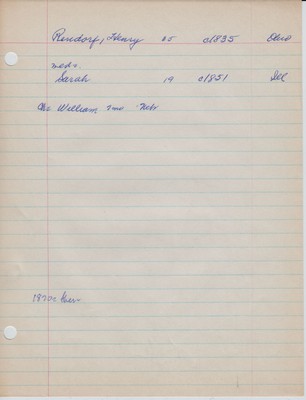 Rendorf, Henry 25 c1835 Ohio
meds.
Sarah 19 c1851 Ill
Ch: William 7mo Nebr
1870s